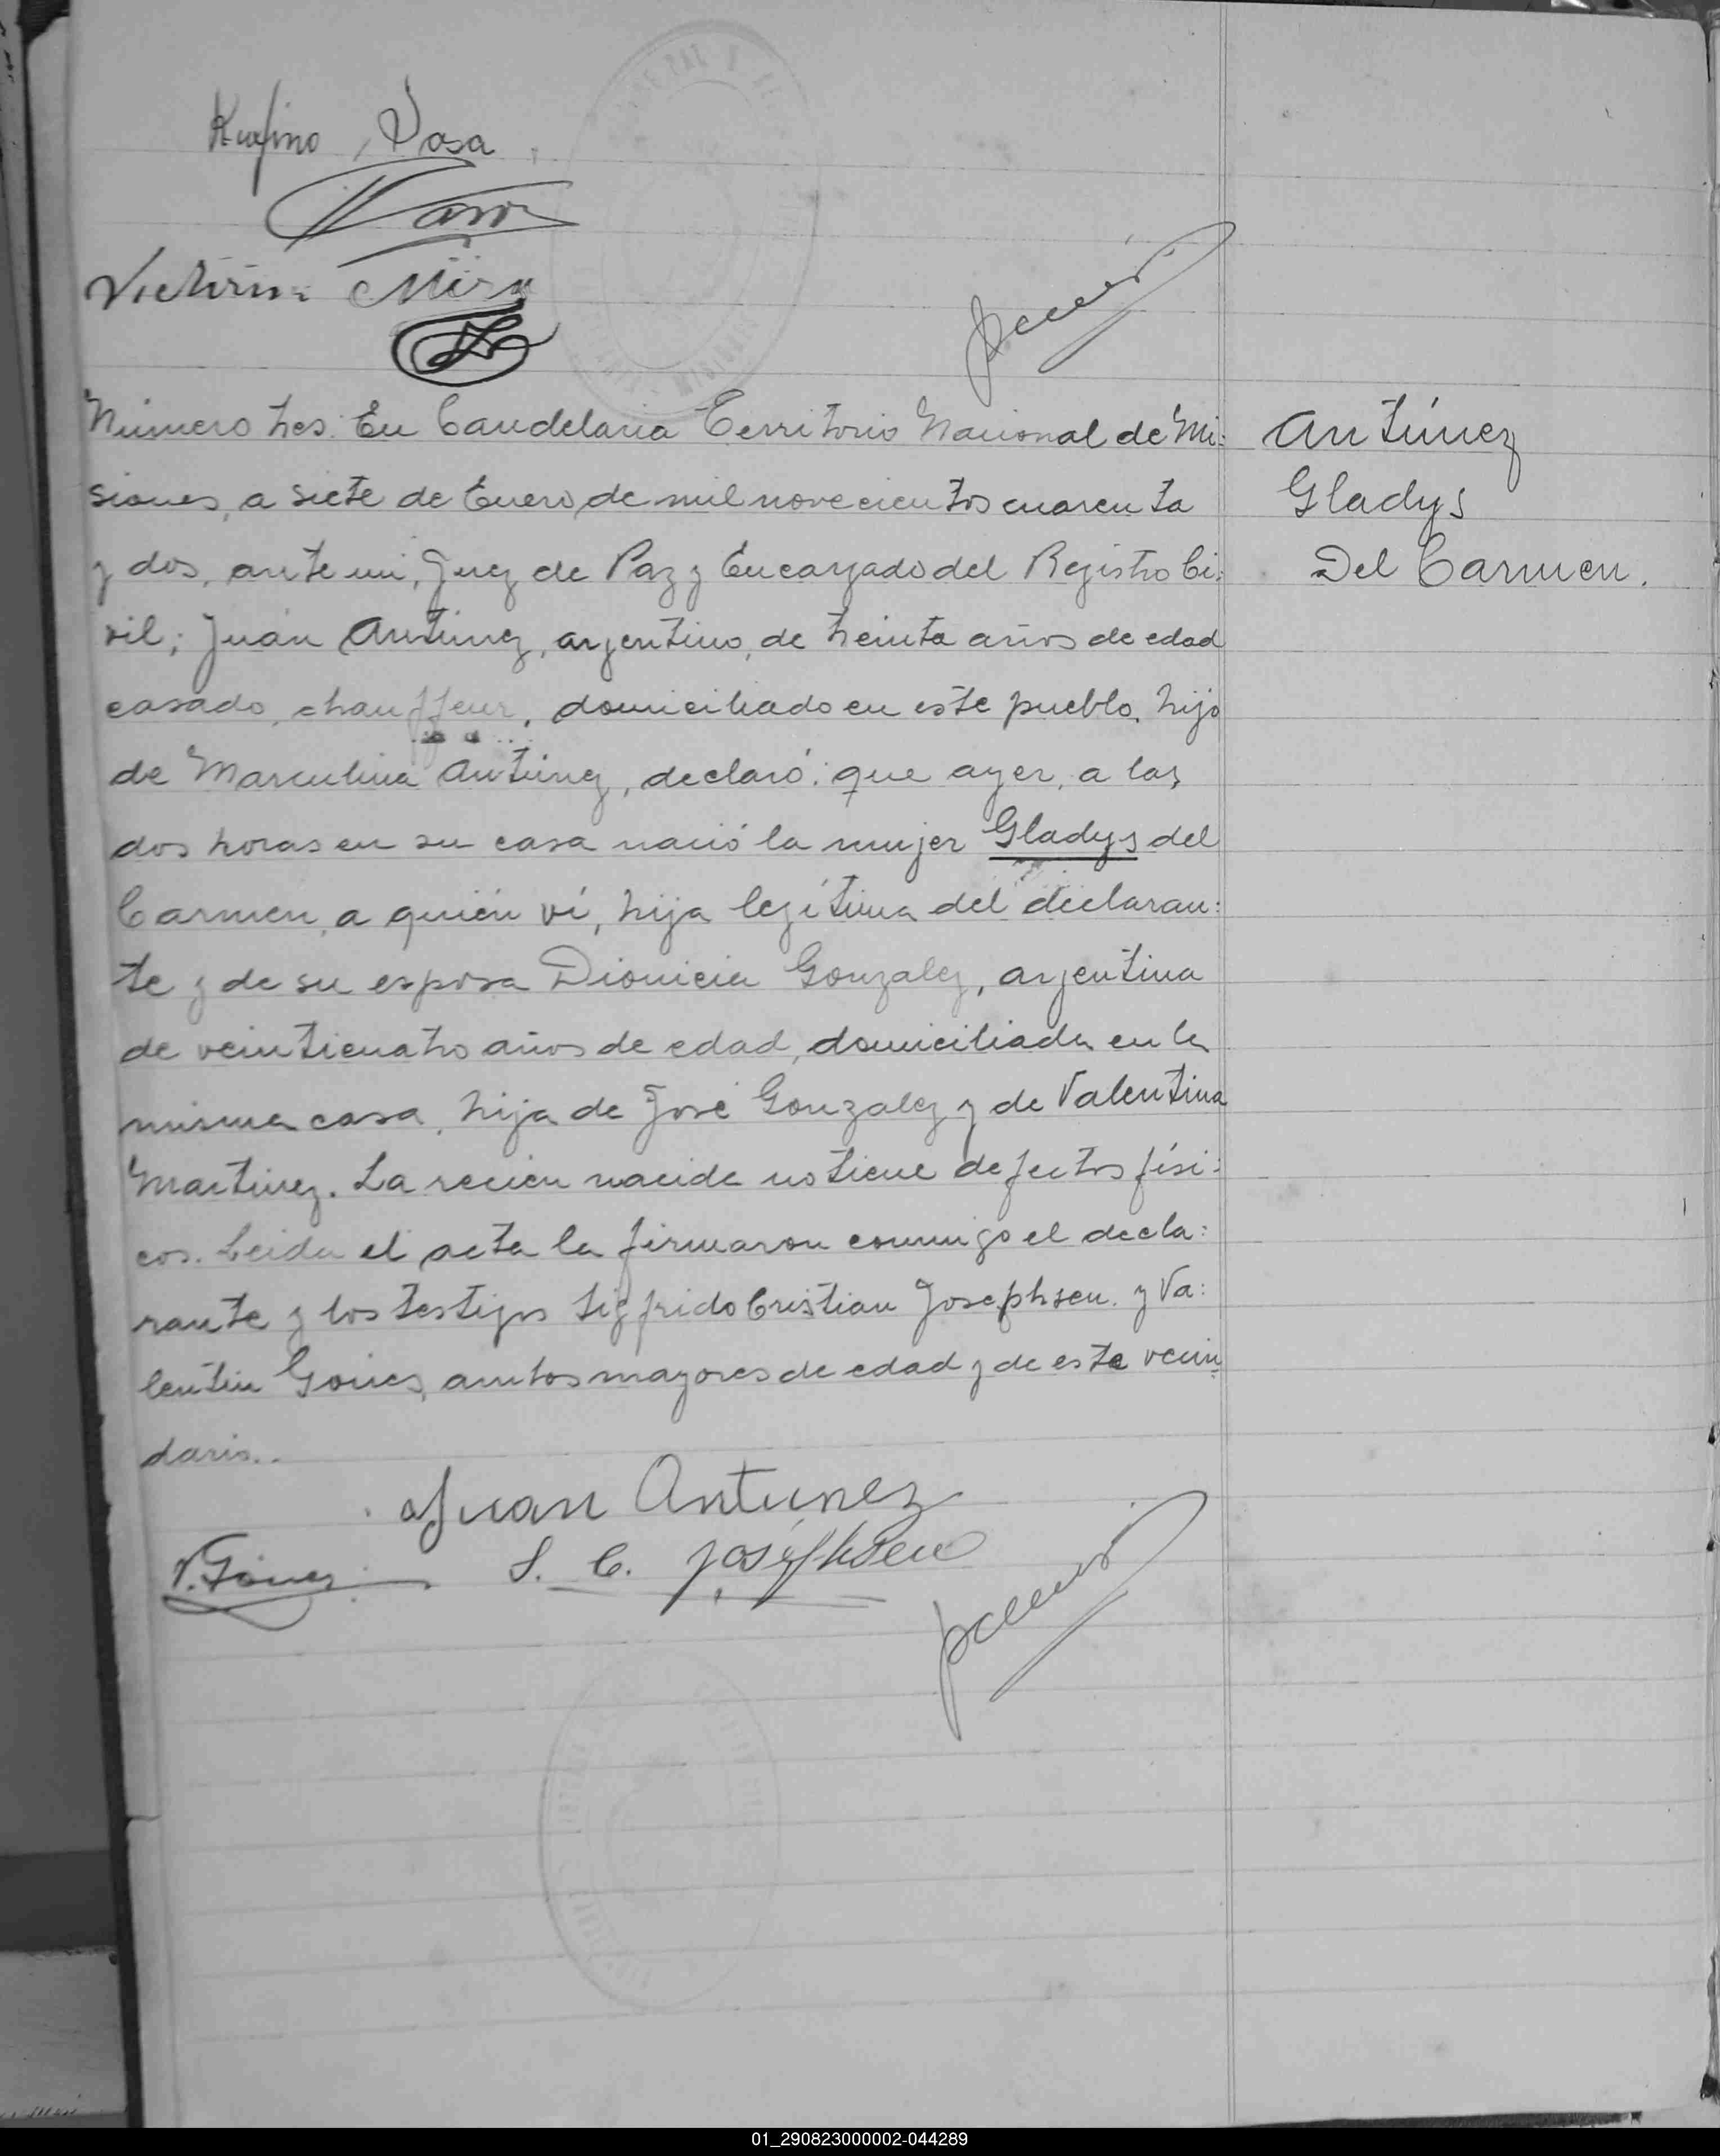 Rufino Sosa
Número tres. En Candelaria Territorio Nacional de Mi:
siones, a siete de Enero de mil novecientos cuarenta
y dos, ante mi, Juez de Paz y Encargado del Registro Ci:
vil; Juan Antúnez, argentino, de treinta años de edad
casado, chauffeur, domiciliado en este pueblo, hijo
de Marculina Antúnez, declaró: que ayer, a las
dos horas en su casa nació la mujer Gladys del
Carmen, a quién ví, hija legítima del declaran:
te y de su esposa Dionicia Gonzalez, argentina
de veinticuatro años de edad, domiciliada en la
misma casa, hija de José Gonzalez y de Valentina
Martinez. La recien nacida no tiene defectos físi:
cos. Leida el acta la firmaron conmigo el decla:
rante y los testigos Sigfrido Cristian Josephsen y Va:
lentin Goires, ambos mayores de edad y de este vecin
dario..
Antúnez
Gladys
Del Carmen.
Juan Antunez
S. C. Josephsen
01_290823000002-044289